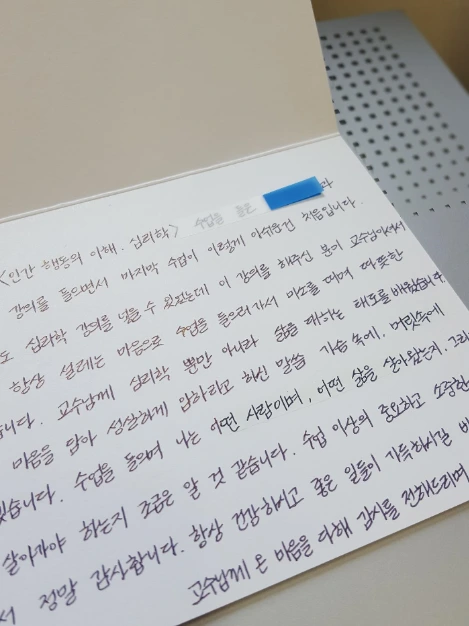 <인간 행동의 이해. 심리학> 수업을 들은 과
강의를 들으면서 마지막 수업이 이렇게 아쉬운건 처음입니다.
도 심리학 강의를 넣을 수 있었는데 이 강의를 해주신 분이 교수님이셔서
항상 설레는 마음으로 수업을 들으러 가서 미소를 띄며 따뜻한
니다. 교수님께 심리학 뿐만 아니라 삶을 대하는 태도를 배웠습니다
마음을 담아 성실하게 임하라고 하신 말씀 가슴 속에, 머릿속에
겠습니다. 수업을 들으며 나는 어떤 사람이며, 어떤 삶을 살아왔는지. 그리
살아가야 하는지 조금은 알 것 같습니다. 수업 이상의 중요하고 소중한
서 정말 감사합니다. 항상 건강하시고 좋은 일들이 가득하시길 바
교수님께 온 마음을 다해 감사를 전해드리며